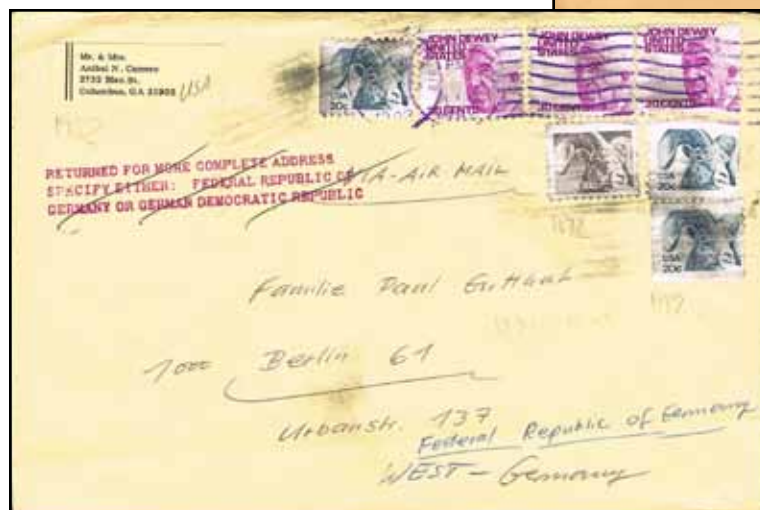 Mr. & Mrs.
Anibal N.
Columbus, GA USA
USA
20c
JOHN DEWEY
UNITED
STATES
30 CENTS
JOHN DEWEY
UNITED
STATES
30 CENTS
JOHN DEWEY
UNITED
STATES
30 CENTS
RETURNED FOR MORE COMPLETE ADDRESS
SPECIFY EITHER: FEDERAL REPUBLIC OF
GERMANY OR GERMAN DEMOCRATIC REPUBLIC
VIA-AIR MAIL
USA
20c
USA
20c
Familie Paul
1000 Berlin 61
Urbanstr. 137
Federal Republic of Germany
WEST-Germany